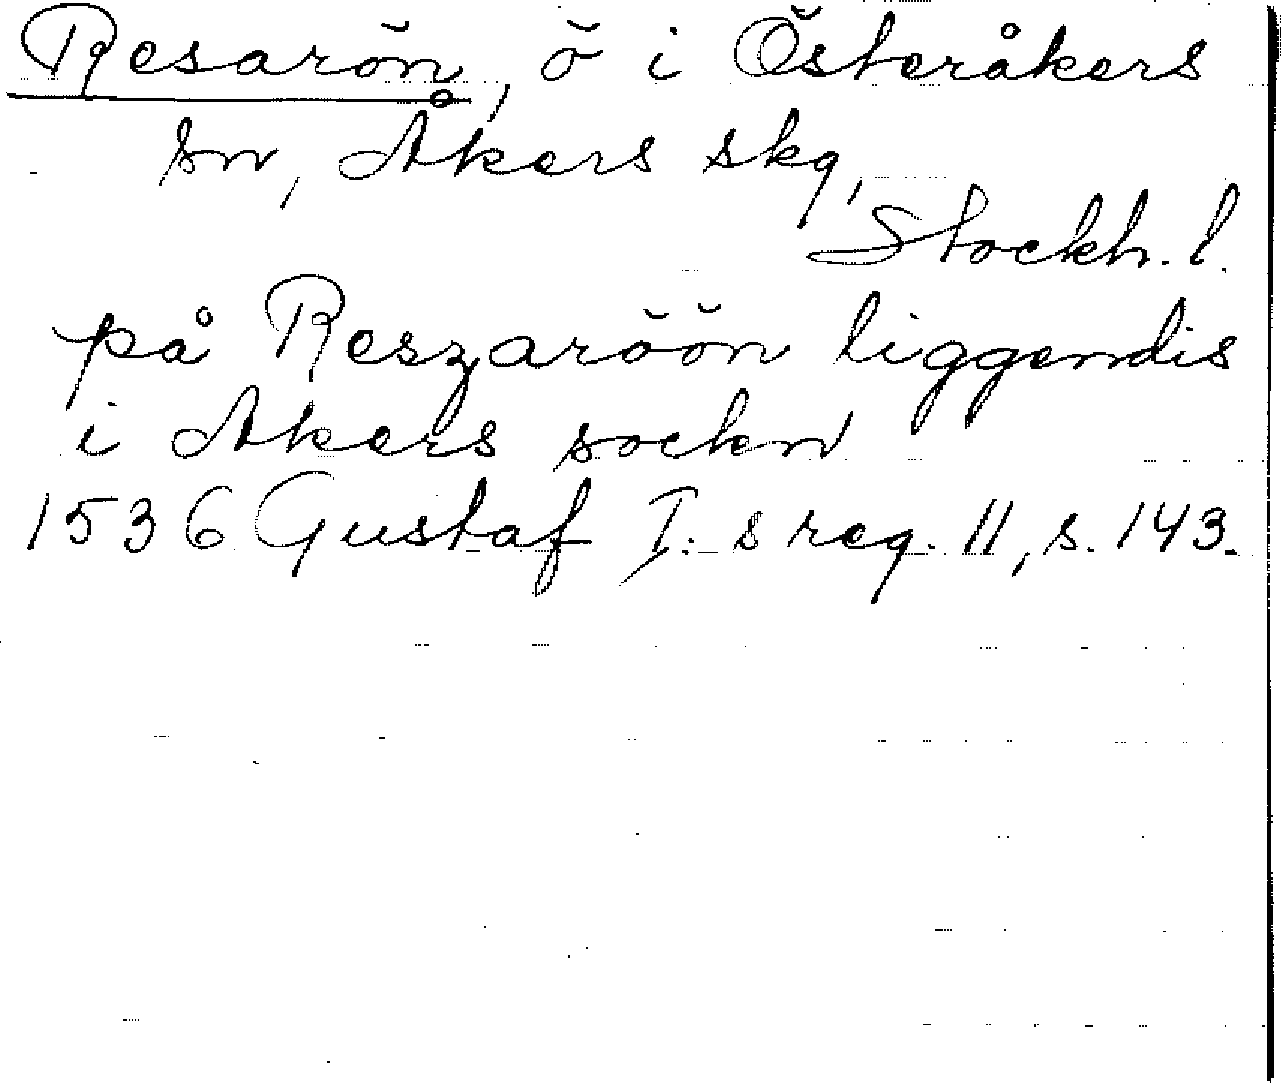 Resarön, ö i Österåkers
sn, Åkers skg,
Stockh. l.
på Reszaröön liggendis
i Akers sockn
1536 Gustaf I:s reg. 11, s. 143.